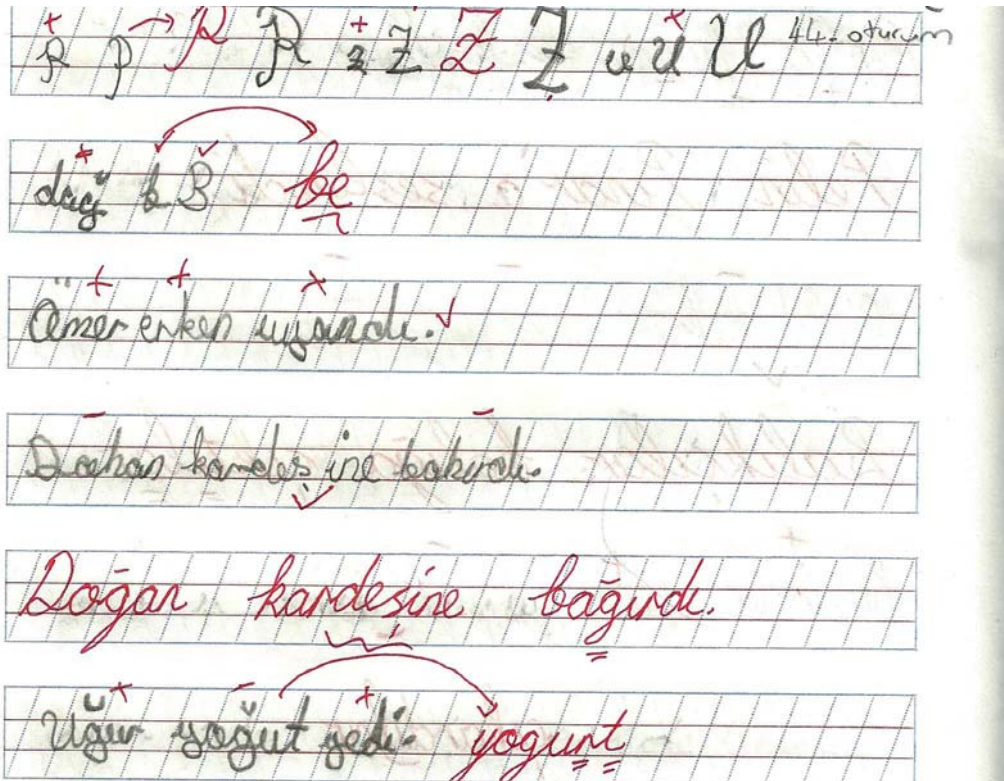 R p R R z Z Z Z u U U 44. oturum
dağ b B be
Ömer erken uyandı.
Dohan kardeş ine bakırdı.
Doğan kardeşine bağırdı.
Uğur yoğut yedi. yogurt